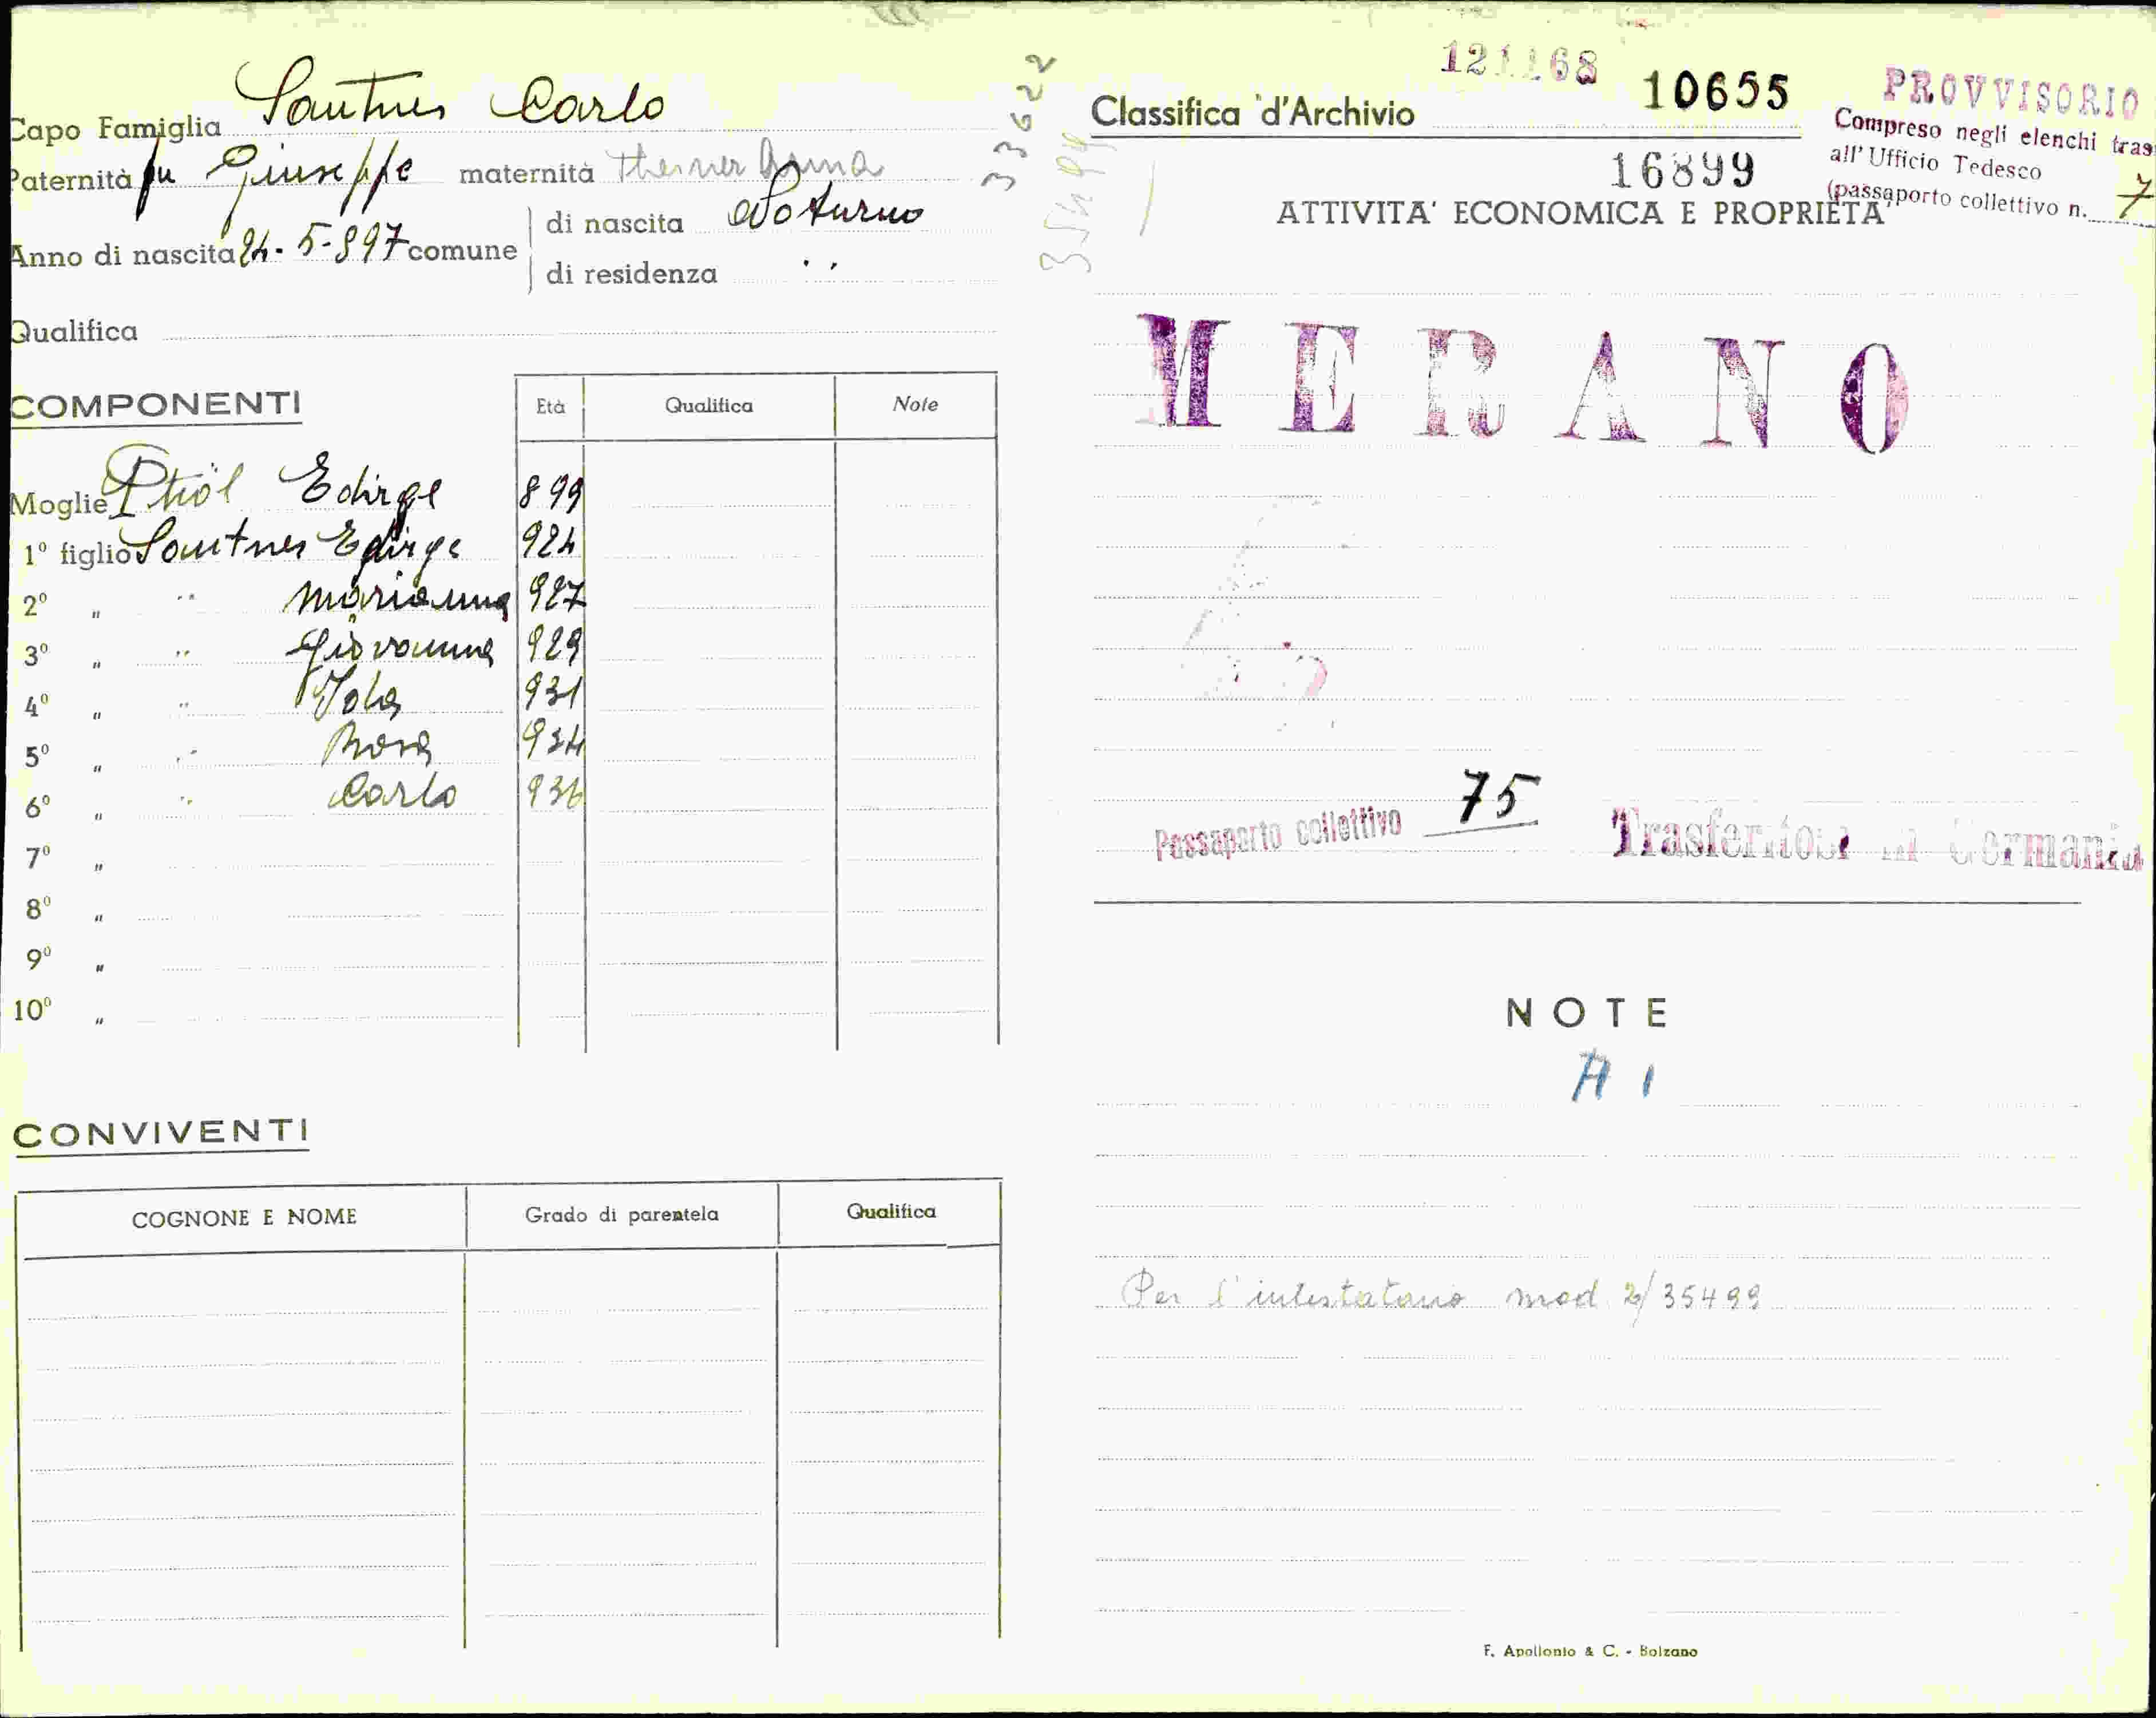 Capo Famiglia Santner Carlo
Paternità fu Giuseppe maternità Theiner Anna
Anno di nascita 24-5-897 comune
di nascita Naturno
di residenza ' '
Qualifica
COMPONENTI Età Qualifica Note
Moglie Edirge 899
1º figlio Santner Edirge 924
2º " " Marianna 927
3º " " Giovanna 929
4º " " 931
5º " " Rosa 934
6º " " Carlo 936
7º "
8º "
9º "
10º "
CONVIVENTI
COGNONE E NOME Grado di parentela Qualifica
33622
35499
121168 10655
Classifica d'Archivio
16899
PROVVISORIO
Compreso negli elenchi tras
all'Ufficio Tedesco
(passaporto collettivo n. 7
ATTIVITA' ECONOMICA E PROPRIETA'
MERANO
Passaporto collettivo 75 Trasferitosi in Germania
NOTE
A 1
Per l'intestatario mod 2/35499
F. Apollonio & C. - Bolzano